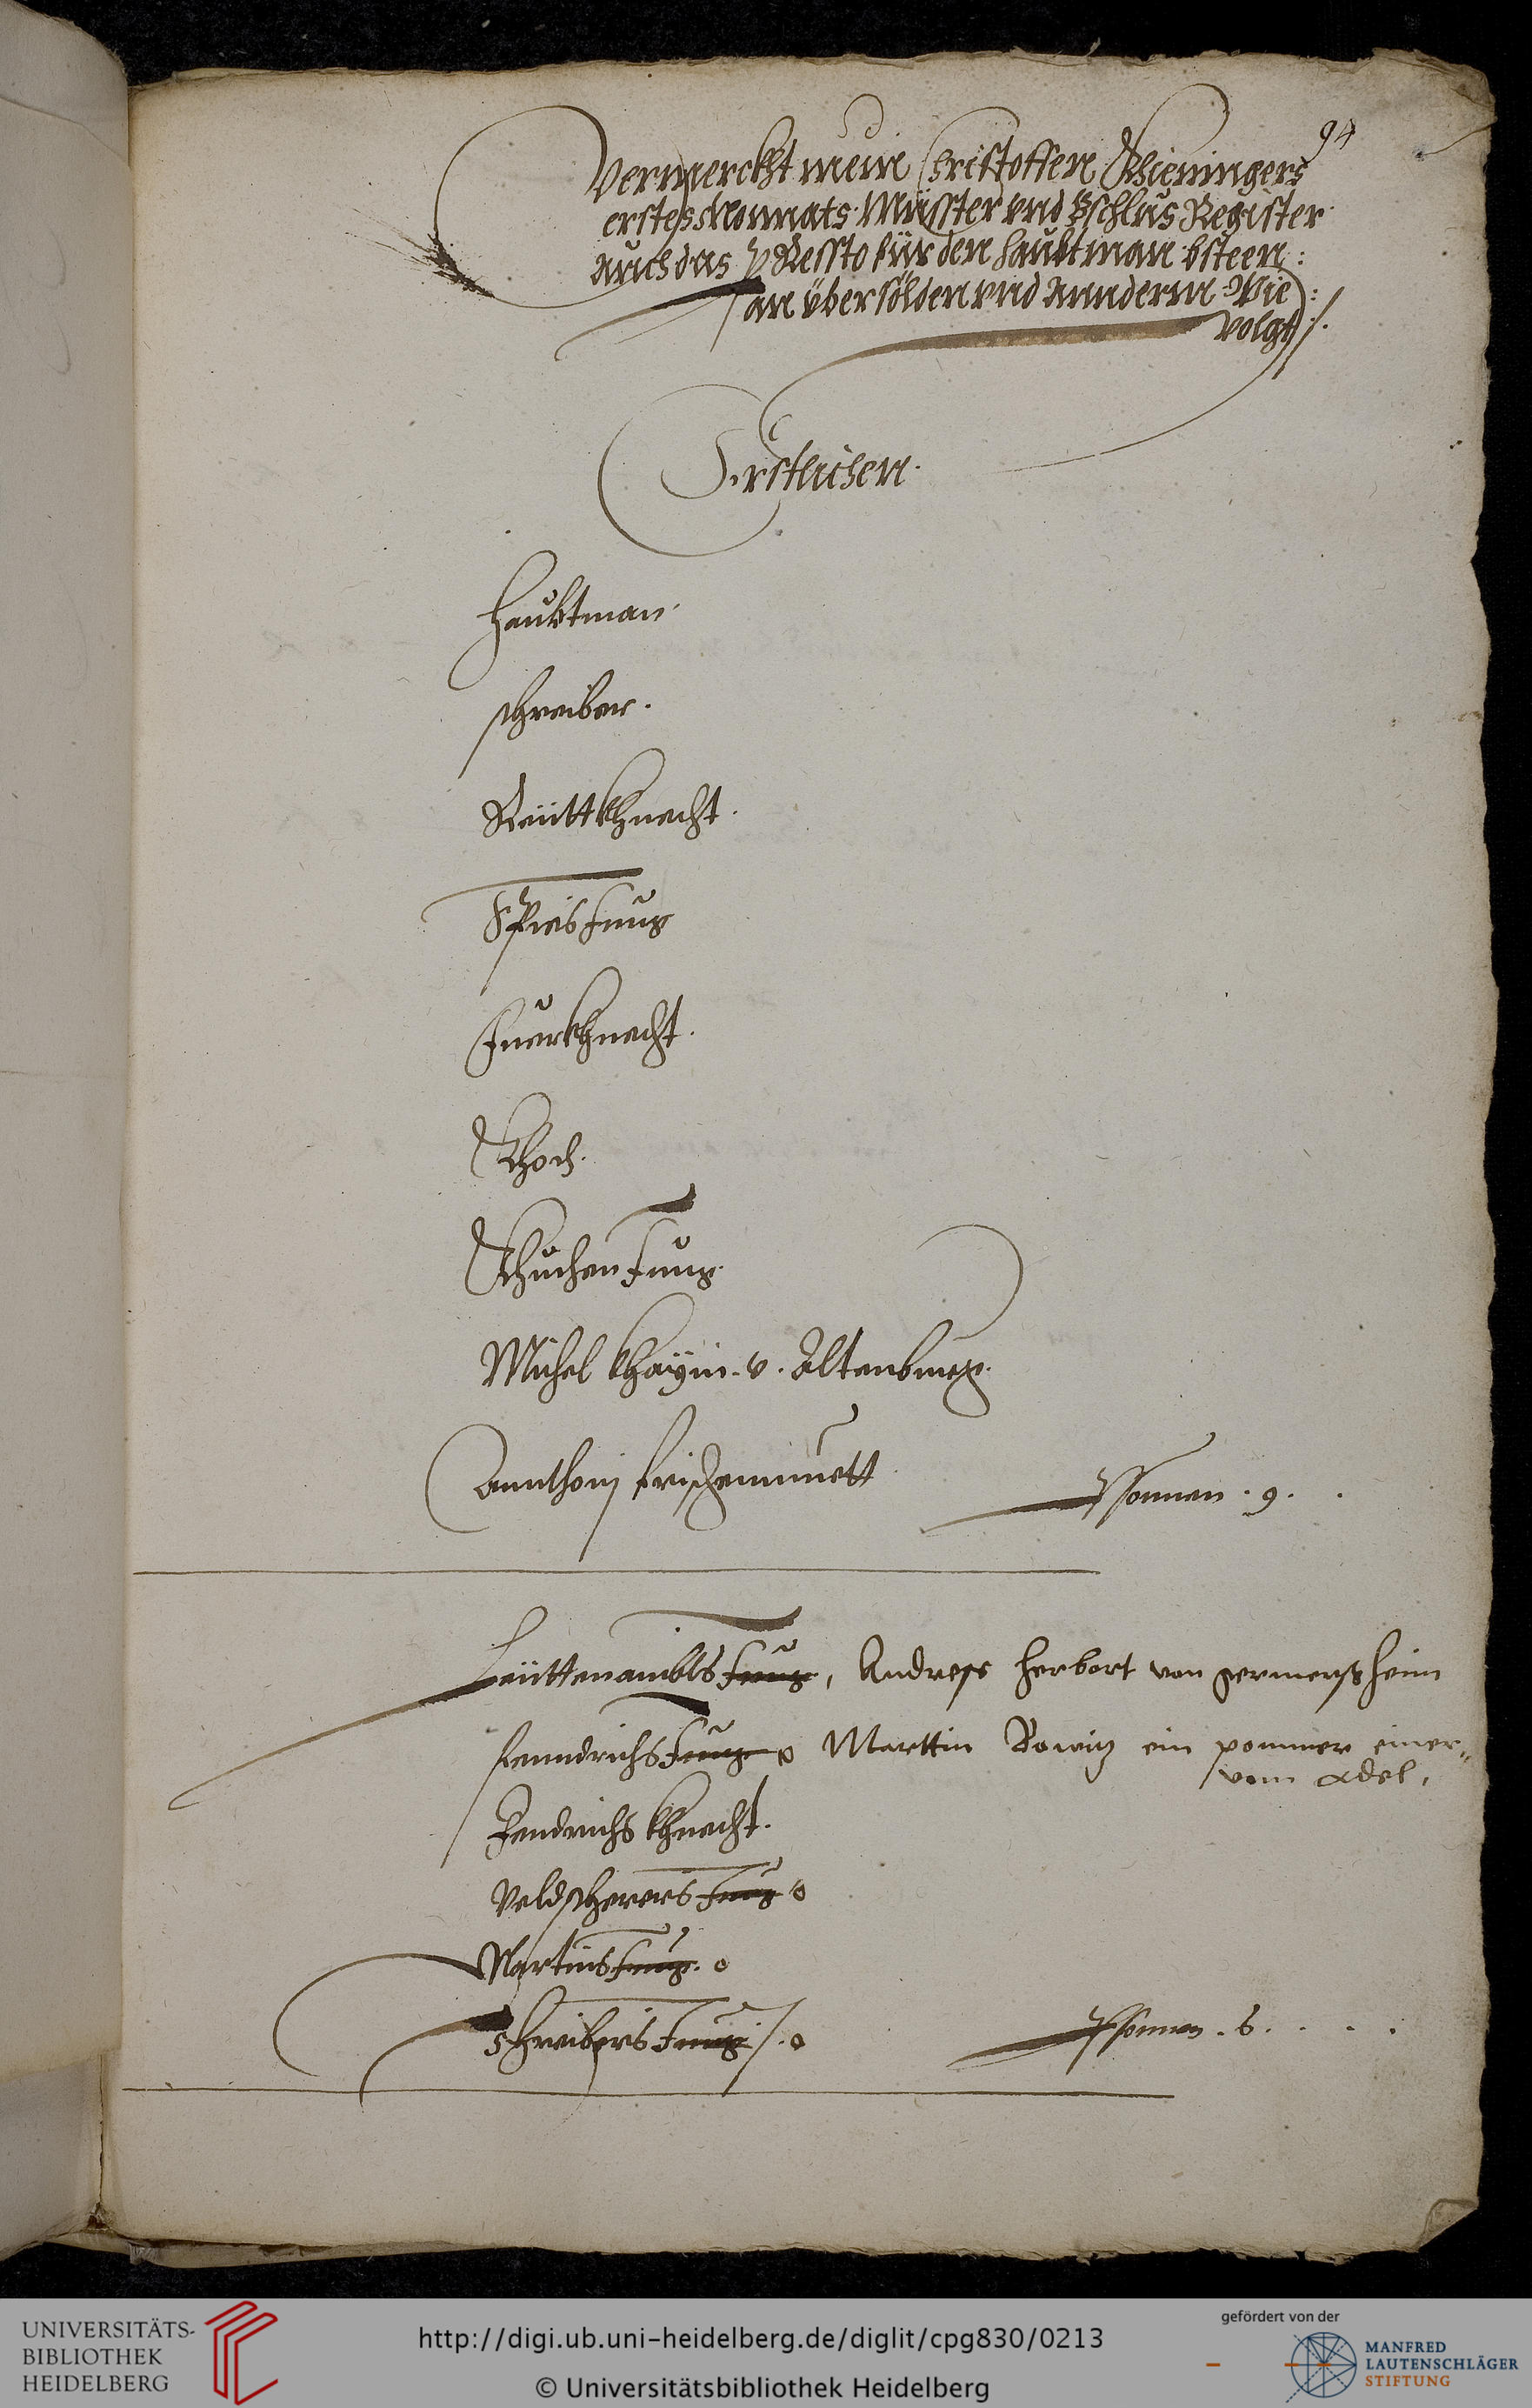 94
Vermerckht mein Christoffen Wieningers
erstes Monnats Musster vnd Bschlus Register
auch das p Ressto für den haubtman bsteen:
an vbersölden vnd annderm Wie
volgt /.
Erstlichen.
Haubtman.
schreiber.
Reüttkhnecht.
Spies Jung
Fuerkhnecht.
Khoch.
Khuchen Jung.
Michel khaÿm. v. Altenburg.
Annthonj frischenmuett
Psonnen . 9 .
Leüttenambts Jung, Andress Herbort von germerssheim
fenndrichs Jung o Marttin Rowitz ein pommer einer
vom adel,
Fendrichs khnecht.
Veldscherers Jung o
Martins Jung. o
schreibers Jung /. o
Psonnen . 6 .
UNIVERSITÄTS-
BIBLIOTHEK
HEIDELBERG
http://digi.ub.uni-heidelberg.de/diglit/cpg830/0213
© Universitätsbibliothek Heidelberg
gefördert von der
MANFRED
LAUTENSCHLÄGER
STIFTUNG